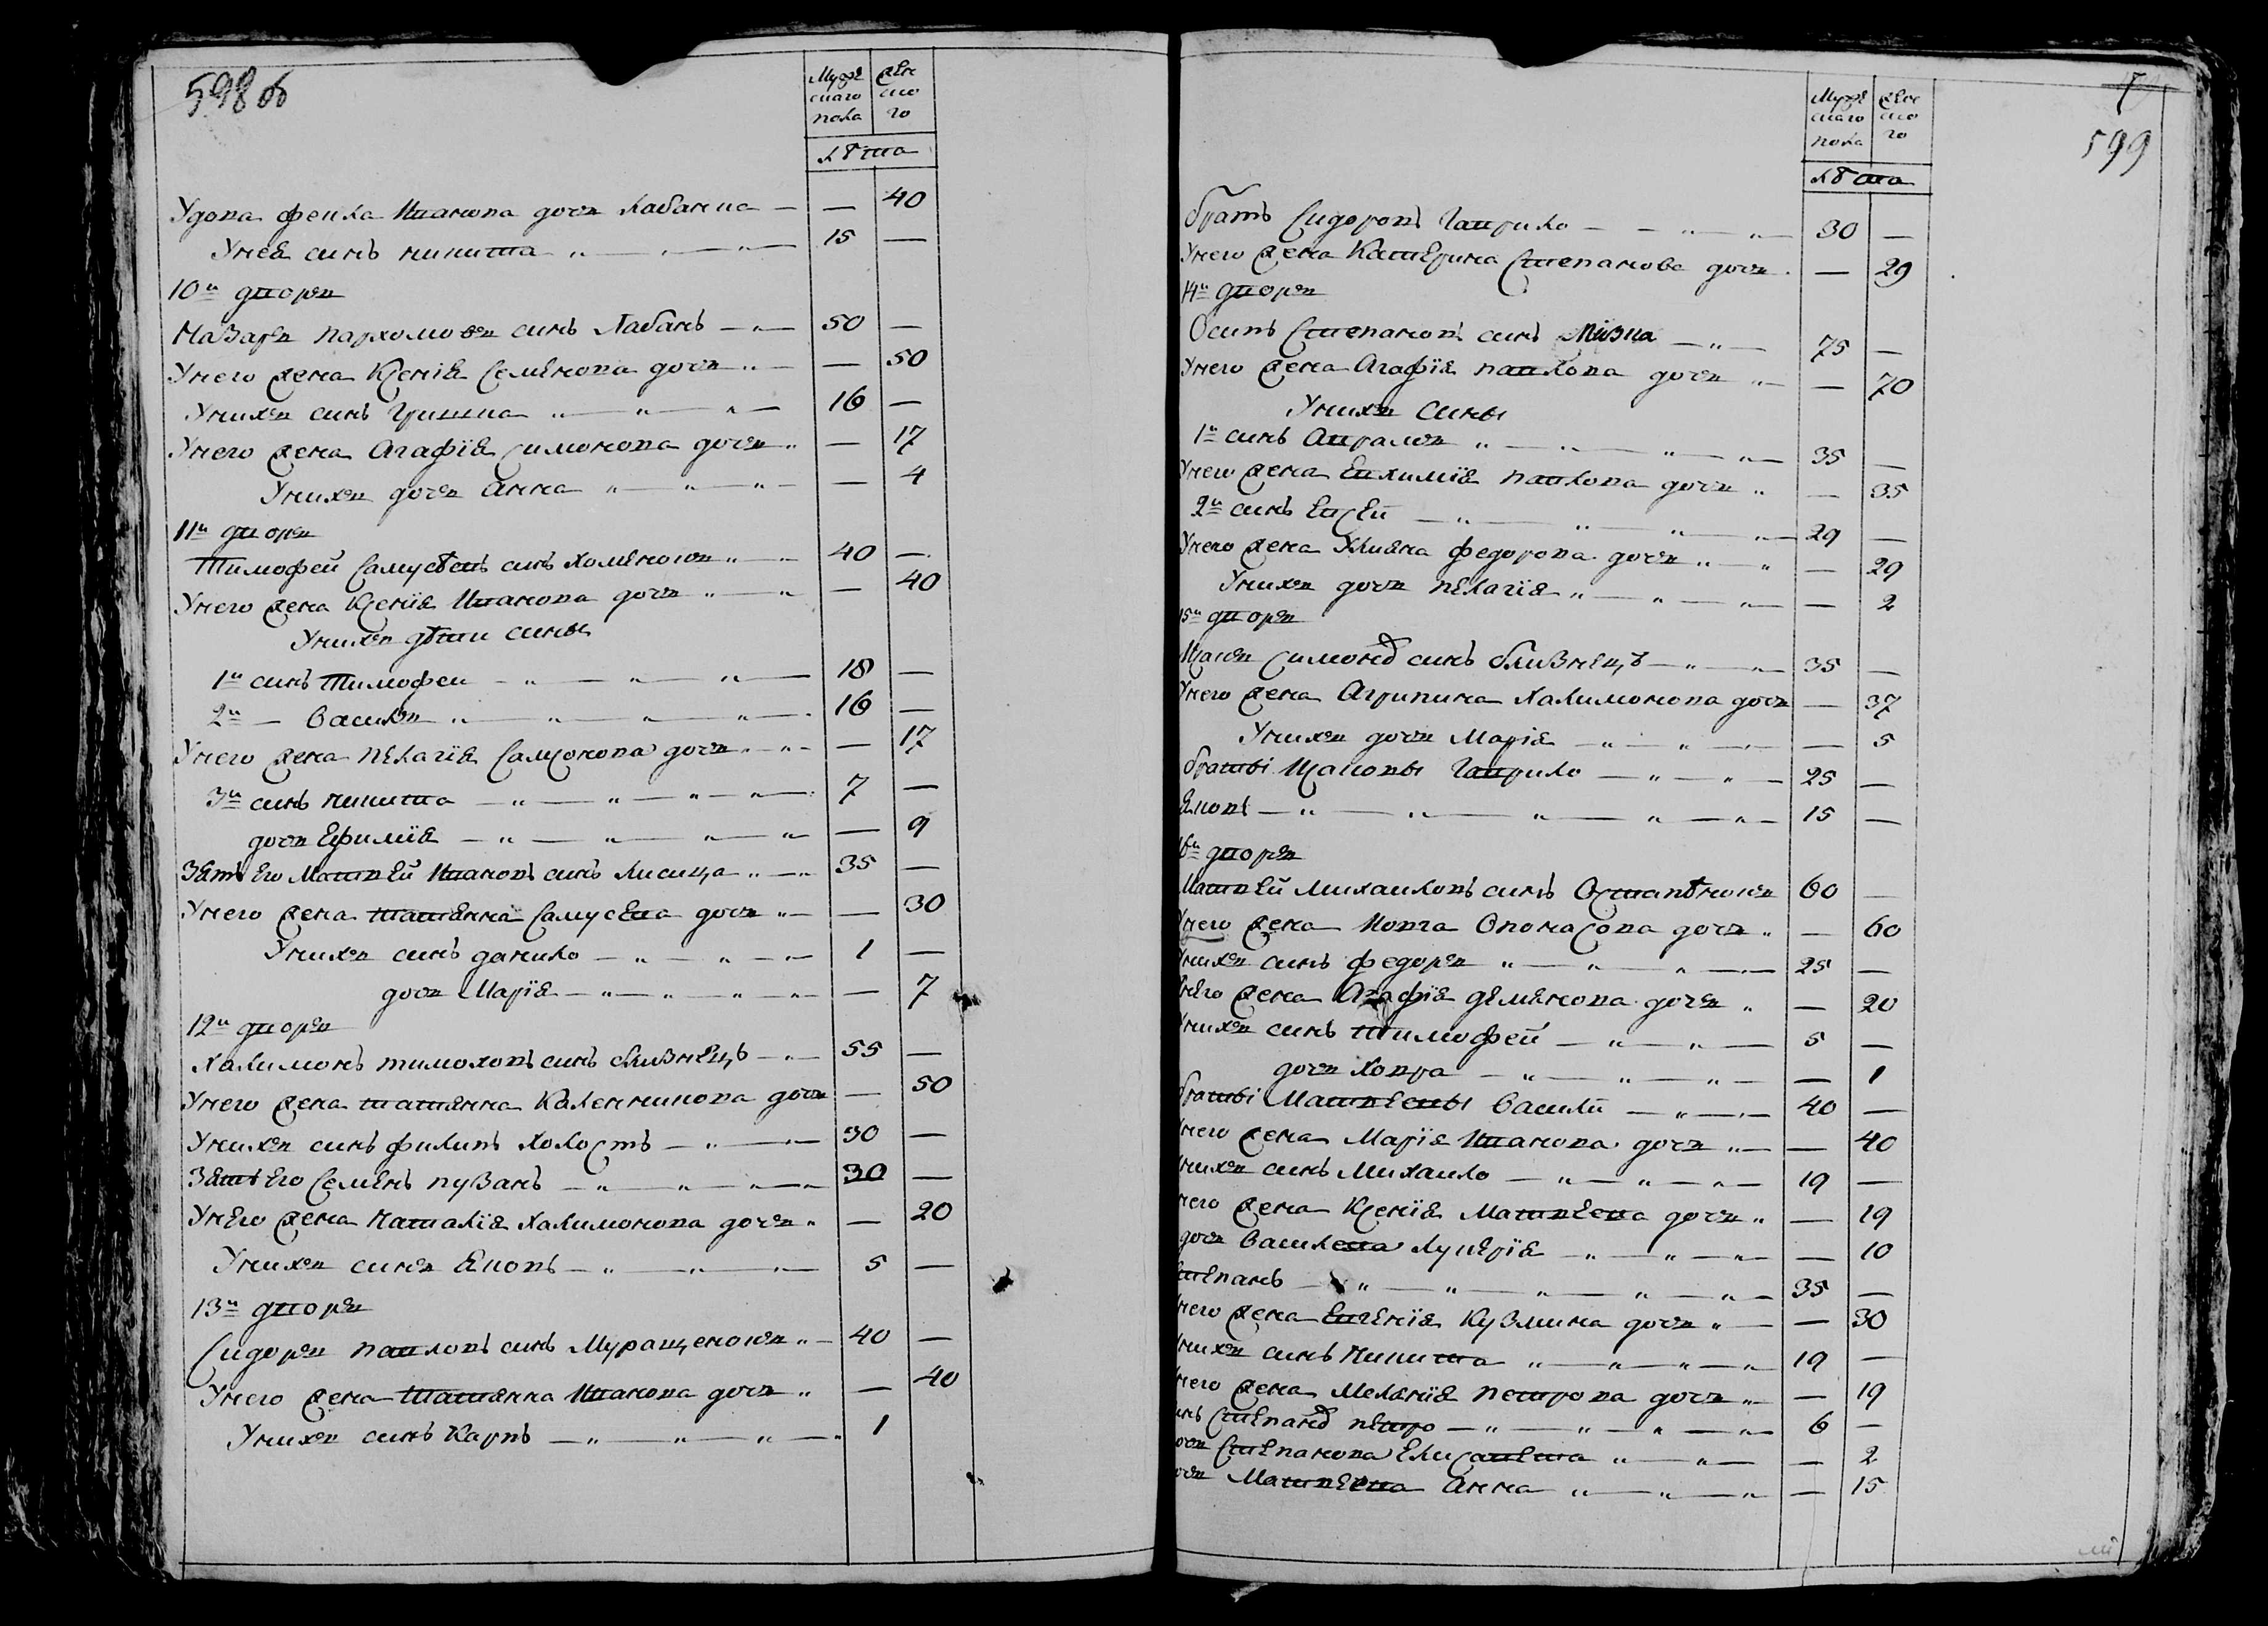 598 об
Мужескаго пола
Женского
лѣта
Удова феска Иванова дочъ лабанка — — 40
Унея синъ никита — 15 —
10й дворъ
Назаръ пархомовъ синъ Лабань — 50 —
Унего жена Ксенія Семянова дочъ — 50
Унихъ синъ Гришка 16 —
Унего жена Агафїя симонова дочъ — 17
Унихъ дочъ Анна — 4
11й дворъ
Тимофей Самусѣвъ синъ хомянокъ 40 —
Унего жена Ксенїя Иванова дочъ — 40
Унихъ дѣти сины
1й синъ Тимофеи 18 —
2й — Василъ 16 —
Унего жена пелагїя Самсонова дочъ — 17
3й синъ никита 7 —
дочъ Ефимїя — 9
Зять Его Матвей Ивановъ синъ лисица 35 —
Унего жена татянна Самусева дочъ — 30
Унихъ синъ данило 1 —
дочъ Марїя — 7
12й дворъ
Халимонъ тимоховъ синъ близнецъ 55 —
Унего жена татянна Каленикова дочъ — 50
Унихъ синъ филипъ холостъ 30 —
Зять Его Семенъ пузань 30 —
Унего жена Наталїя халимонова дочъ — 20
Унихъ синъ Яковъ 5 —
13й дворъ
Сидоръ павловъ синъ Муращенокъ 40 —
Унего жена татянна Иванова дочъ — 40
Унихъ синъ Карпъ 1
599
Мужескаго пола
Женского
лѣта
братъ Сидоровъ Гаврило 30 —
Унего жена Катерина Степанова дочъ — 29
14й дворъ
Осипъ Степановъ синъ Мизка 75 —
Унего жена Агафїя павлова дочъ — 70
Унихъ сины
1й синъ Аврамъ 35 —
Унего жена Евхимїя павлова дочъ — 35
2й синъ Евсей 29 —
Унего жена Уляна федорова дочъ — 29
Унихъ дочъ пелагїя — 2
15й дворъ
Исакъ симоновъ синъ близнецъ 35 —
Унего жена Агрипина халимонова дочъ — 37
Унихъ дочъ Марїя — 5
братві Исаковы Гаврило 25 —
Яковъ 15 —
16й дворъ
Матвей михаиловъ синъ Остапѣнокъ 60 —
Унего жена Мовга Опонасова дочъ — 60
Унихъ синъ федоръ 25 —
Унего жена Агафїя демянова дочъ — 20
Унихъ синъ тимофей 5 —
дочъ ховра — 1
братві Матвеевы Василй 40 —
Унего жена Марїя Иванова дочъ — 40
Унихъ синъ михаило 19 —
Унего жена Ксенїя Матвеева дочъ — 19
дочъ Василева лукерїя — 10
Степанъ 35 —
Унего жена Евгенїя Кузмина дочъ — 30
Унихъ синъ никита 19 —
Унего жена Меланїя петрова дочъ — 19
синъ Степановъ петро 6 —
дочъ Степанова Елисавета — 2
дочъ Матвеева Анна — 15